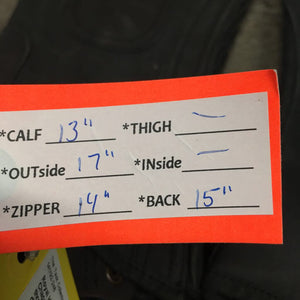 *CALF 13" *THIGH —
*OUTside 17" *INside —
*ZIPPER 14" *BACK 15"